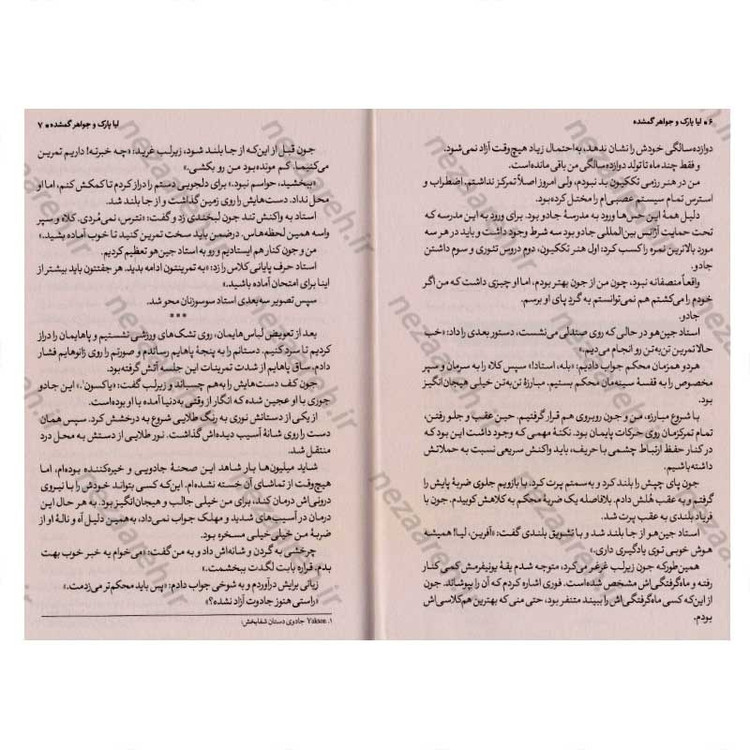 ۶ • لیا پارک و جواهر گمشده
دوازده‌سالگی خودش را نشان ندهد، به‌احتمال زیاد هیچ‌وقت آزاد نمی‌شود.
و فقط چند ماه تا تولد دوازده‌سالگی من باقی مانده است.
من در هنر رزمی تککیون بد نبودم، ولی امروز اصلاً تمرکز نداشتم. اضطراب و
استرس تمام سیستم عصبی‌ام را مختل کرده بود.
دلیل همهٔ این حس‌ها ورود به مدرسهٔ جادو بود. برای ورود به این مدرسه که
تحت حمایت آژانس بین‌المللی جادو بود سه شرط وجود داشت و باید در هر سه
مورد بالاترین نمره را کسب کرد: اول هنر تککیون، دوم دروس تئوری و سوم داشتن
جادو.
واقعاً منصفانه نبود، چون من از جون بهتر بودم، اما او چیزی داشت که من اگر
خودم را می‌کشتم هم نمی‌توانستم به گرد پای او برسم.
جادو.
استاد جین‌هو در حالی که روی صندلی می‌نشست، دستور بعدی را داد: «خب
حالا تمرین تن‌به‌تن رو انجام می‌دیم.»
هر دو هم‌زمان محکم جواب دادیم: «بله، استاد!» سپس کلاه را به سرمان و سپر
مخصوص را به قفسهٔ سینه‌مان محکم بستیم. مبارزهٔ تن‌به‌تن خیلی هیجان‌انگیز
بود.
با شروع مبارزه، من و جون روبروی هم قرار گرفتیم. حین عقب و جلو رفتن،
تمام تمرکزمان روی حرکات پایمان بود. نکتهٔ مهمی که وجود داشت این بود که
در کنار حفظ ارتباط چشمی با حریف، باید واکنش سریعی نسبت به حملاتش
داشته باشیم.
جون پای چپش را بلند کرد و به سمتم پرت کرد، با بازویم جلوی ضربهٔ پایش را
گرفتم و به عقب هُلش دادم. بلافاصله یک ضربهٔ محکم به کلاهش کوبیدم. جون با
فریاد بلندی به عقب پرت شد.
استاد جین‌هو از جا بلند شد و با تشویق بلندی گفت: «آفرین، لیا! همیشه
هوش خوبی توی یادگیری داری.»
همین‌طور که جون زیرلب غرغر می‌کرد، متوجه شدم یقهٔ یونیفرمش کمی کنار
رفته و ماه‌گرفتگی‌اش مشخص شده است. فوری اشاره کردم که آن را بپوشاند. جون
از این‌که کسی ماه‌گرفتگی‌اش را ببیند متنفر بود، حتی منی که بهترین هم‌کلاسی‌اش
بودم.
لیا پارک و جواهر گمشده • ۷
جون قبل از این‌که از جا بلند شود، زیرلب غرید: «چه خبرته! داریم تمرین
می‌کنیما. کم مونده بود من رو بکشی.»
«ببخشید، حواسم نبود.» برای دلجویی دستم را دراز کردم تا کمکش کنم، اما او
محل نداد. دست‌هایش را روی زمین گذاشت و از جا بلند شد.
استاد به واکنش تند جون لبخندی زد و گفت: «نترس، نمی‌مُردی. کلاه و سپر
واسه همین لحظه‌هاس. درضمن باید سخت تمرین کنید تا خوب آماده بشید.»
من و جون کنار هم ایستادیم و رو به استاد جین‌هو تعظیم کردیم.
استاد حرف پایانی کلاس را زد: «به تمرینتون ادامه بدید. هر جفتتون باید بیشتر از
اینا برای امتحان آماده باشید.»
سپس تصویر سه‌بعدی استاد سوسوزنان محو شد.
***
بعد از تعویض لباس‌هایمان، روی تشک‌های ورزشی نشستیم و پاهایمان را دراز
کردیم تا سرد کنیم. دستانم را به پنجهٔ پاهایم رساندم و صورتم را روی زانوهایم فشار
دادم. ساق پاهایم از شدت تمرینات این جلسه آتش گرفته بود.
جون کف دست‌هایش را به‌هم چسباند و زیرلب گفت: «یاکسون¹.» این جادو
جوری با او عجین شده که انگار از وقتی به‌دنیا آمده با او بوده است.
از یکی از دستانش نوری به رنگ طلایی شروع به درخشش کرد. سپس همان
دست را روی شانهٔ آسیب دیده‌اش گذاشت. نور طلایی از دستش به محل درد
منتقل شد.
شاید میلیون‌ها بار شاهد این صحنهٔ جادویی و خیره‌کننده بوده‌ام، اما
هیچ‌وقت از تماشای آن خسته نشده‌ام. این‌که کسی بتواند خودش را با نیروی
درونی‌اش درمان کند، برای من خیلی جالب و هیجان‌انگیز بود. به هر حال این
درمان در آسیب‌های شدید و مهلک جواب نمی‌داد، به‌همین دلیل آه و نالهٔ او از
ضربهٔ من خیلی خیلی مسخره بود.
چرخشی به گردن و شانه‌اش داد و به من گفت: «می‌خوام یه خبر خوب بهت
بدم. قراره بابت لگدت ببخشمت.»
زبانی برایش درآوردم و به شوخی جواب دادم: «پس باید محکم‌تر می‌زدمت.»
«راستی هنوز جادوت آزاد نشده؟»
۱. Yakson جادوی دستان شفابخش؛
nezaareh.ir